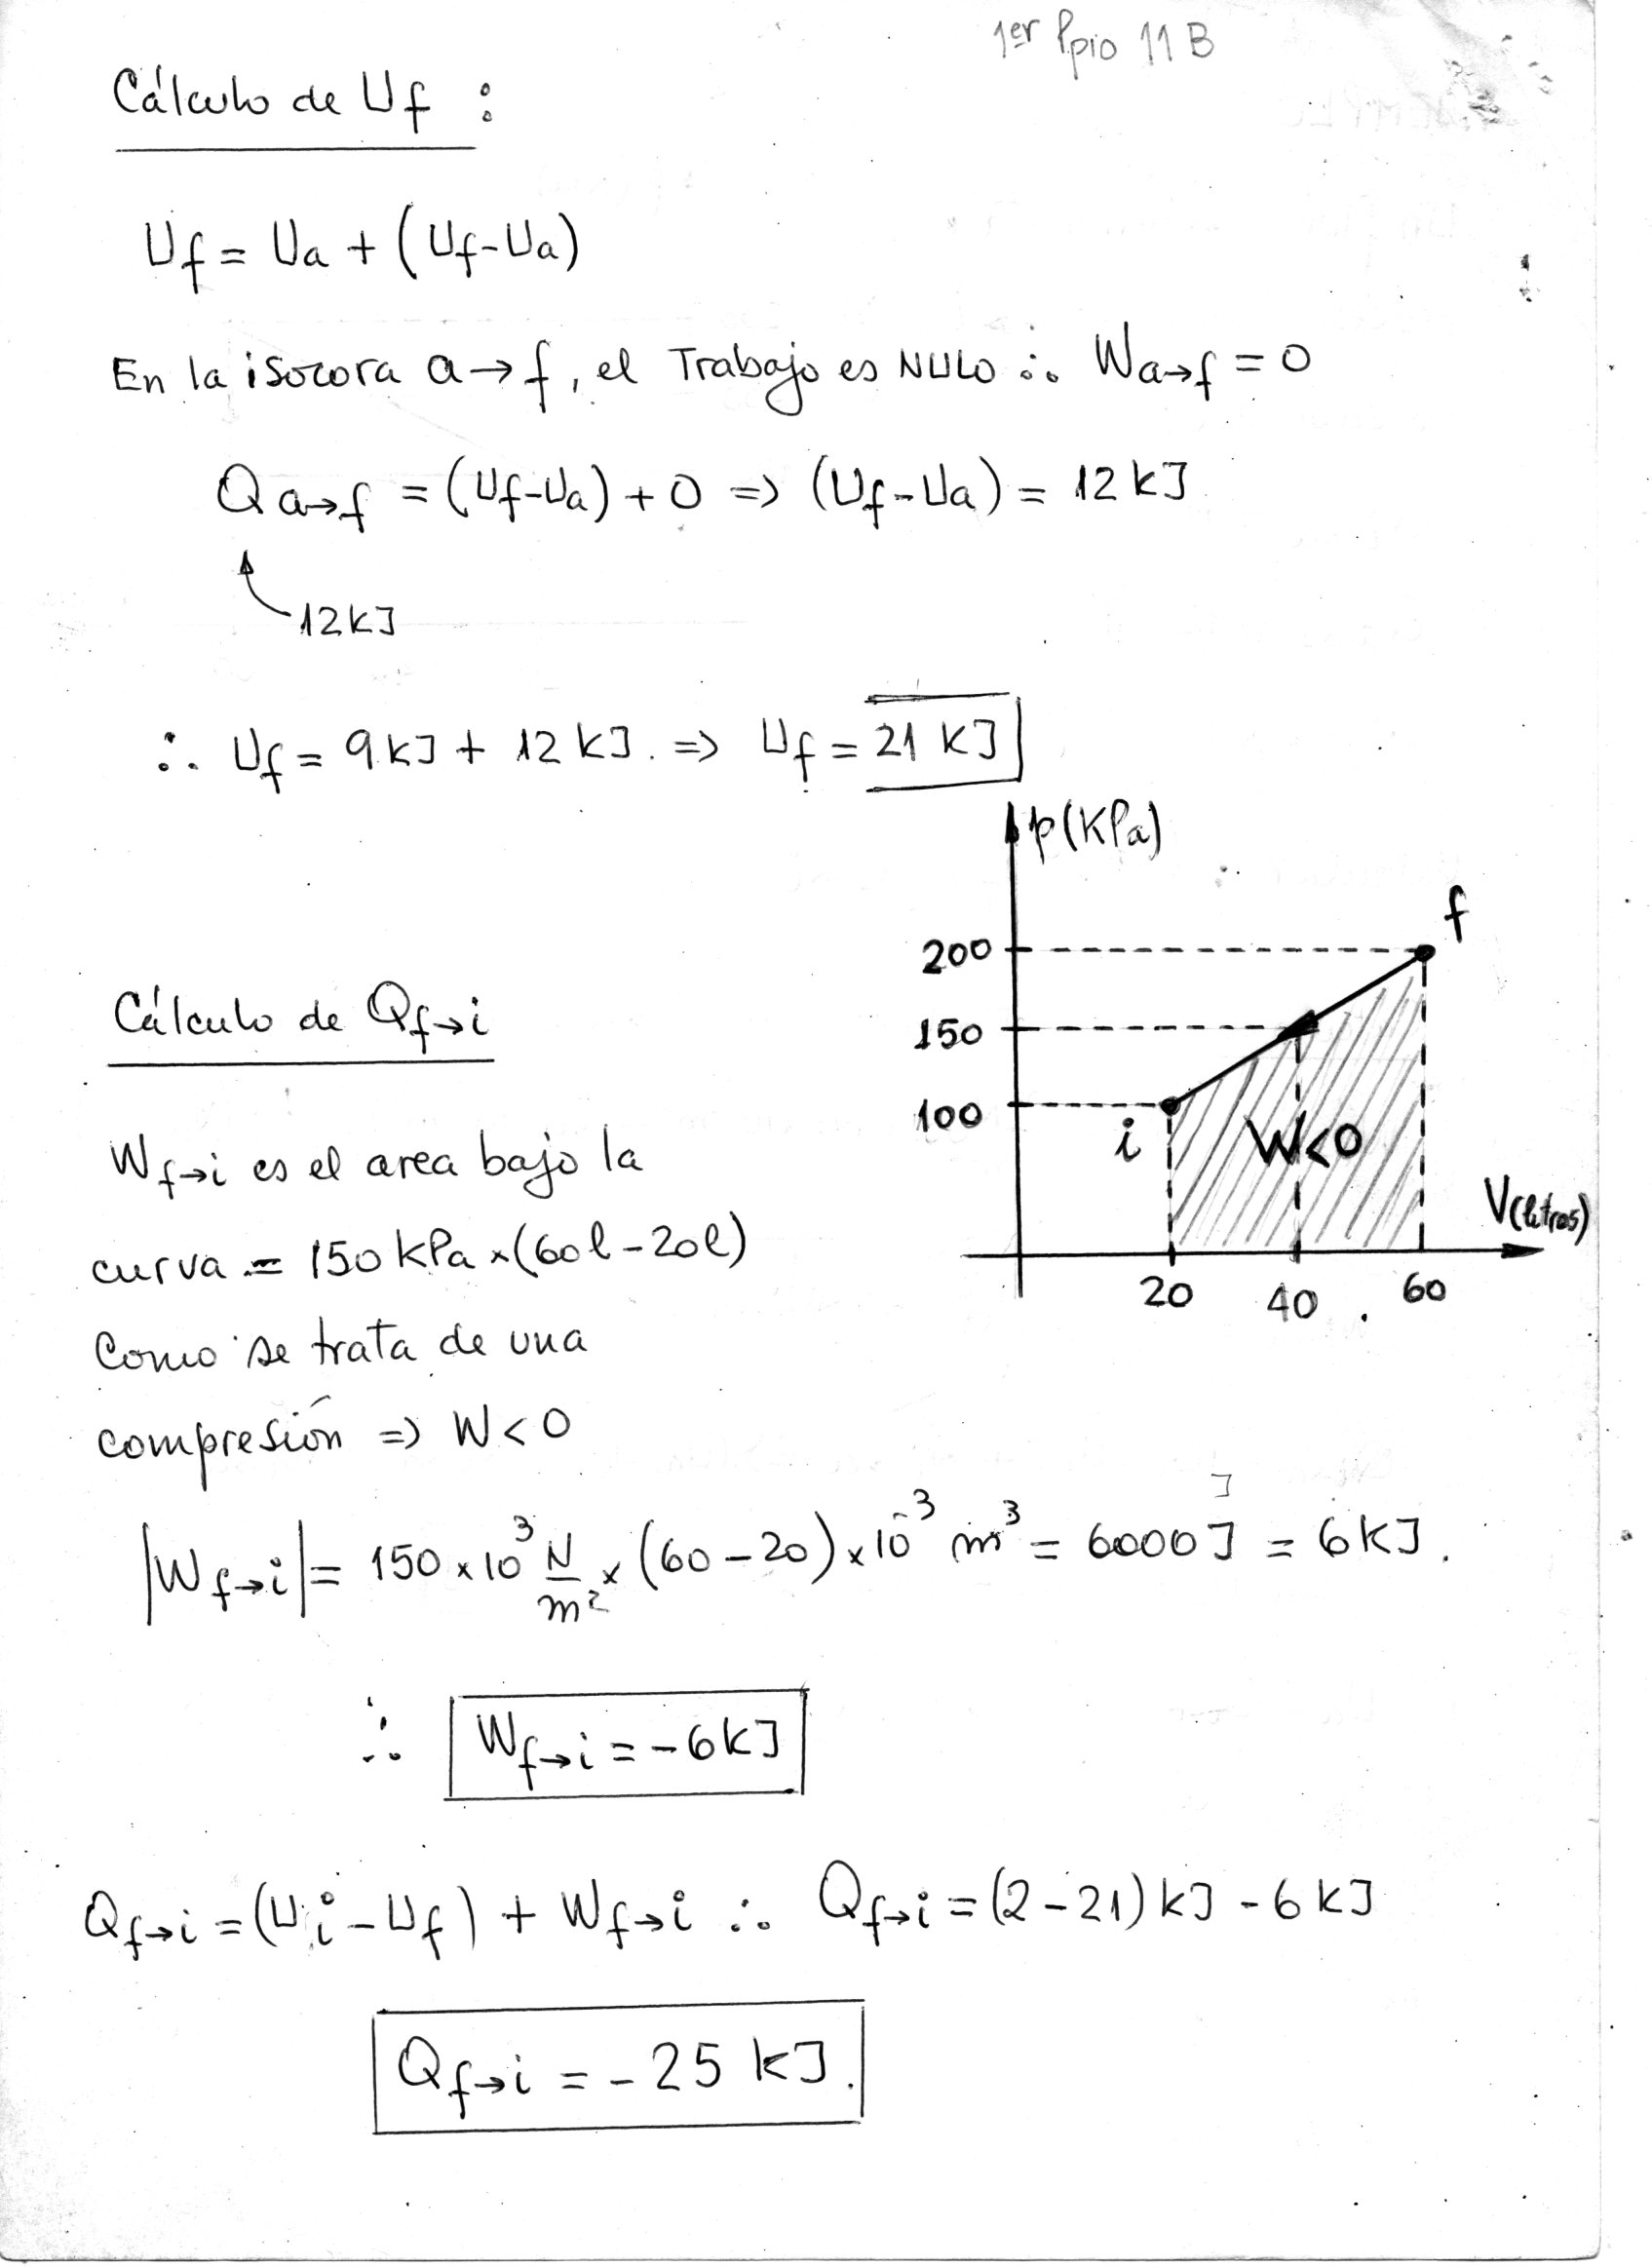 1er Ppio 11 B
Cálculo de Uf :
Uf = Ua + (Uf-Ua)
En la isocora a→f, el Trabajo es NULO ∴ Wa→f = 0
Qa→f = (Uf-Ua) + 0 => (Uf-Ua) = 12 kJ
12 kJ
∴ Uf = 9 kJ + 12 kJ. => Uf = 21 kJ
p (KPa)
f
200
150
100
i
W<0
V(litros)
20 40 60
Cálculo de Qf→i
Wf→i es el area bajo la
curva = 150 kPa × (60l - 20l)
Como se trata de una
compresión => W < 0
|Wf→i| = 150 × 10³ N/m² × (60 - 20) × 10⁻³ m³ = 6000 J = 6 kJ.
J
∴ Wf→i = -6 kJ
Qf→i = (Ui - Uf) + Wf→i ∴ Qf→i = (2 - 21) kJ - 6 kJ
Qf→i = - 25 kJ.